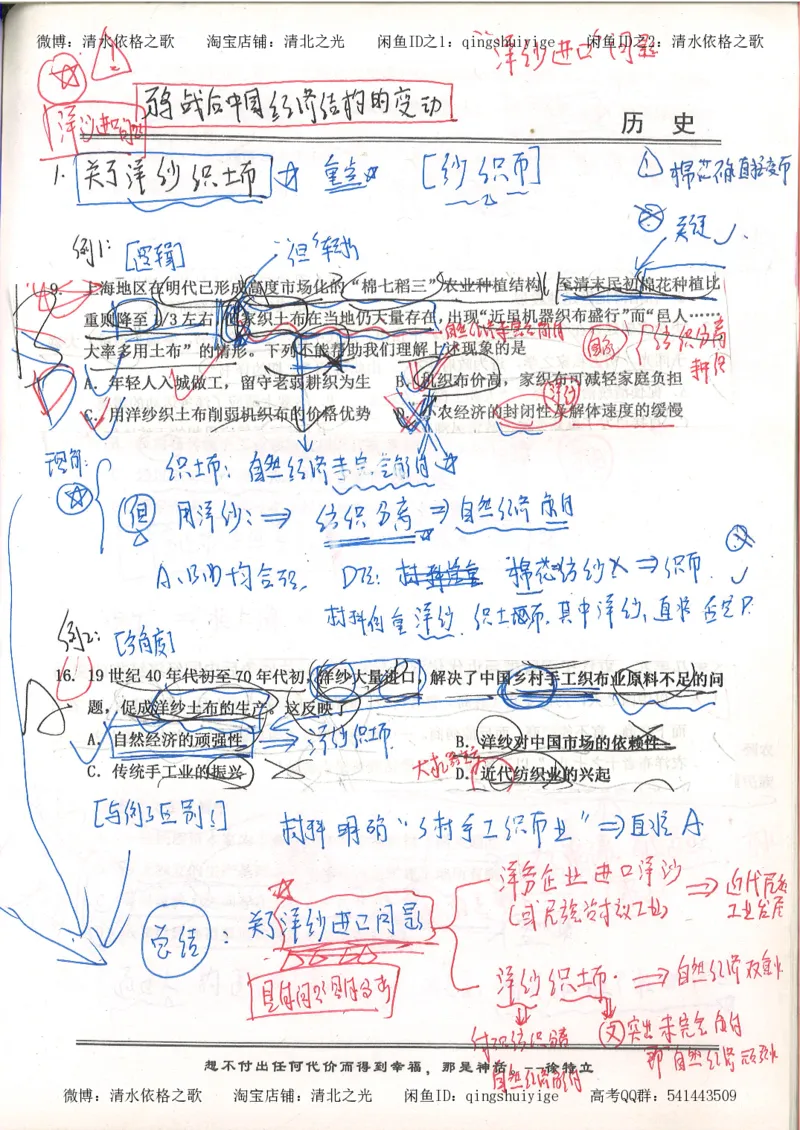 微博：清水依格之歌 淘宝店铺：清北之光 闲鱼ID之1：qingshuiyige 闲鱼ID之2：清水依格之歌
洋纱进口问题
鸦战后中国经济结构的变动
历 史
1. 关于洋纱织土布 重点 [纱织布]
棉花不能直接变布
关键
例1： [逻辑] 但 转折
9. 上海地区在明代已形成高度市场化的“棉七稻三”农业种植结构，至清末民初棉花种植比
重则降至1/3左右，但家织土布在当地仍大量存在，出现“近虽机器织布盛行”而“邑人……
大率多用土布”的情形。下列不能帮助我们理解上述现象的是
A. 年轻人入城做工，留守老弱耕织为生
B. 机织布价高，家织布可减轻家庭负担
C. 用洋纱织土布削弱机织布的价格优势
D. 小农经济的封闭性及解体速度的缓慢
纺织分离
耕织
理解：
织土布：自然经济未完全解体
但 用洋纱：⇒ 纺织分离 ⇒ 自然经济解体
A、B、C均合理， D项： 棉花纺纱X ⇒ 织布
材料侧重洋纱织土布，其中洋纱，直接否定D.
例2： [多角度]
16. 19世纪40年代初至70年代初，洋纱大量进口，解决了中国乡村手工织布业原料不足的问
题，促成洋纱土布的生产。这反映了
A. 自然经济的顽强性
洋纱织土布
B. 洋纱对中国市场的依赖性
C. 传统手工业的振兴
大机器生产
D. 近代纺织业的兴起
[与例3区别！] 材料明确“乡村手工织布业”⇒直接A
总结：关于洋纱进口问题
具体问题具体分析
洋务企业进口洋纱
(或民族资本主义工业)
⇒ 近代民族工业发展
洋纱织土布. ⇒ 自然经济顽强
体现纺织分离
自然经济解体
突出未完全解体
即自然经济顽强
想不付出任何代价而得到幸福，那是神话。——徐特立
微博：清水依格之歌 淘宝店铺：清北之光 闲鱼ID：qingshuiyige 高考QQ群：541443509